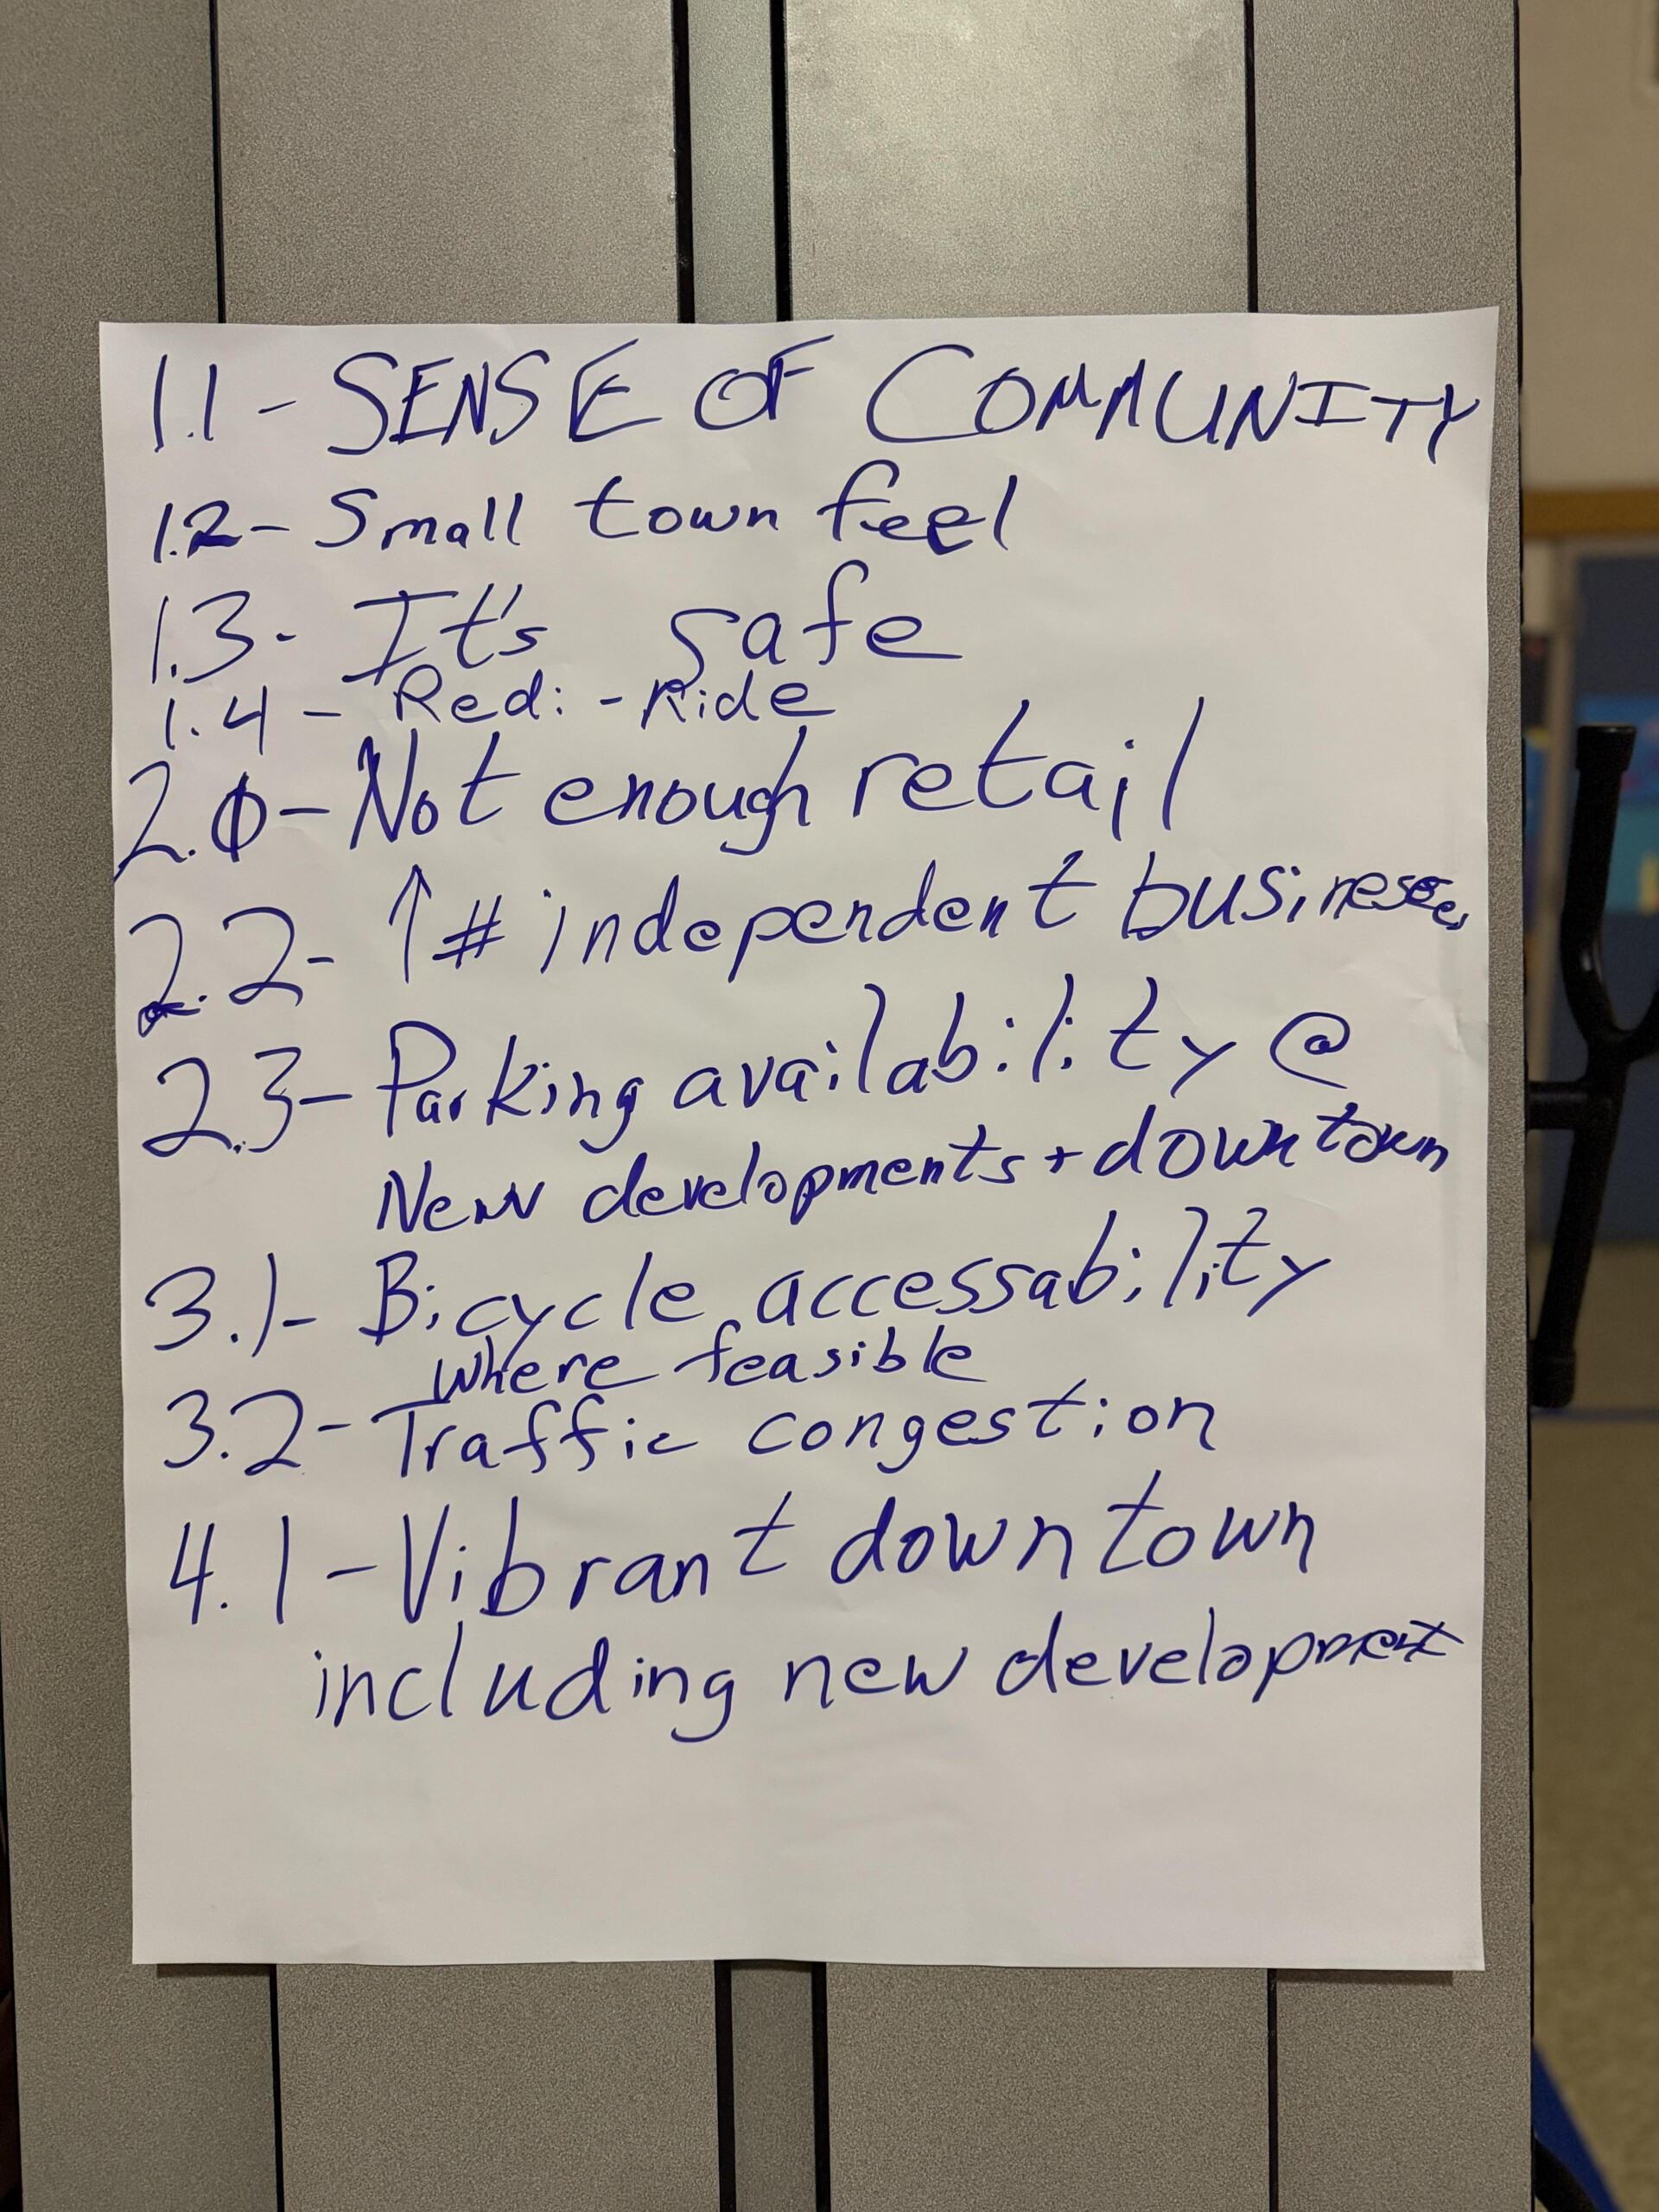 1.1 - SENSE OF COMMUNITY
1.2 - Small town feel
1.3 - It's safe
1.4 - Redi - Ride
2.0 - Not enough retail
2.2 - ↑ # independent businesses
2.3 - Parking availability @
New developments + downtown
3.1 - Bicycle accessability
where feasible
3.2 - Traffic congestion
4.1 - Vibrant downtown
including new development